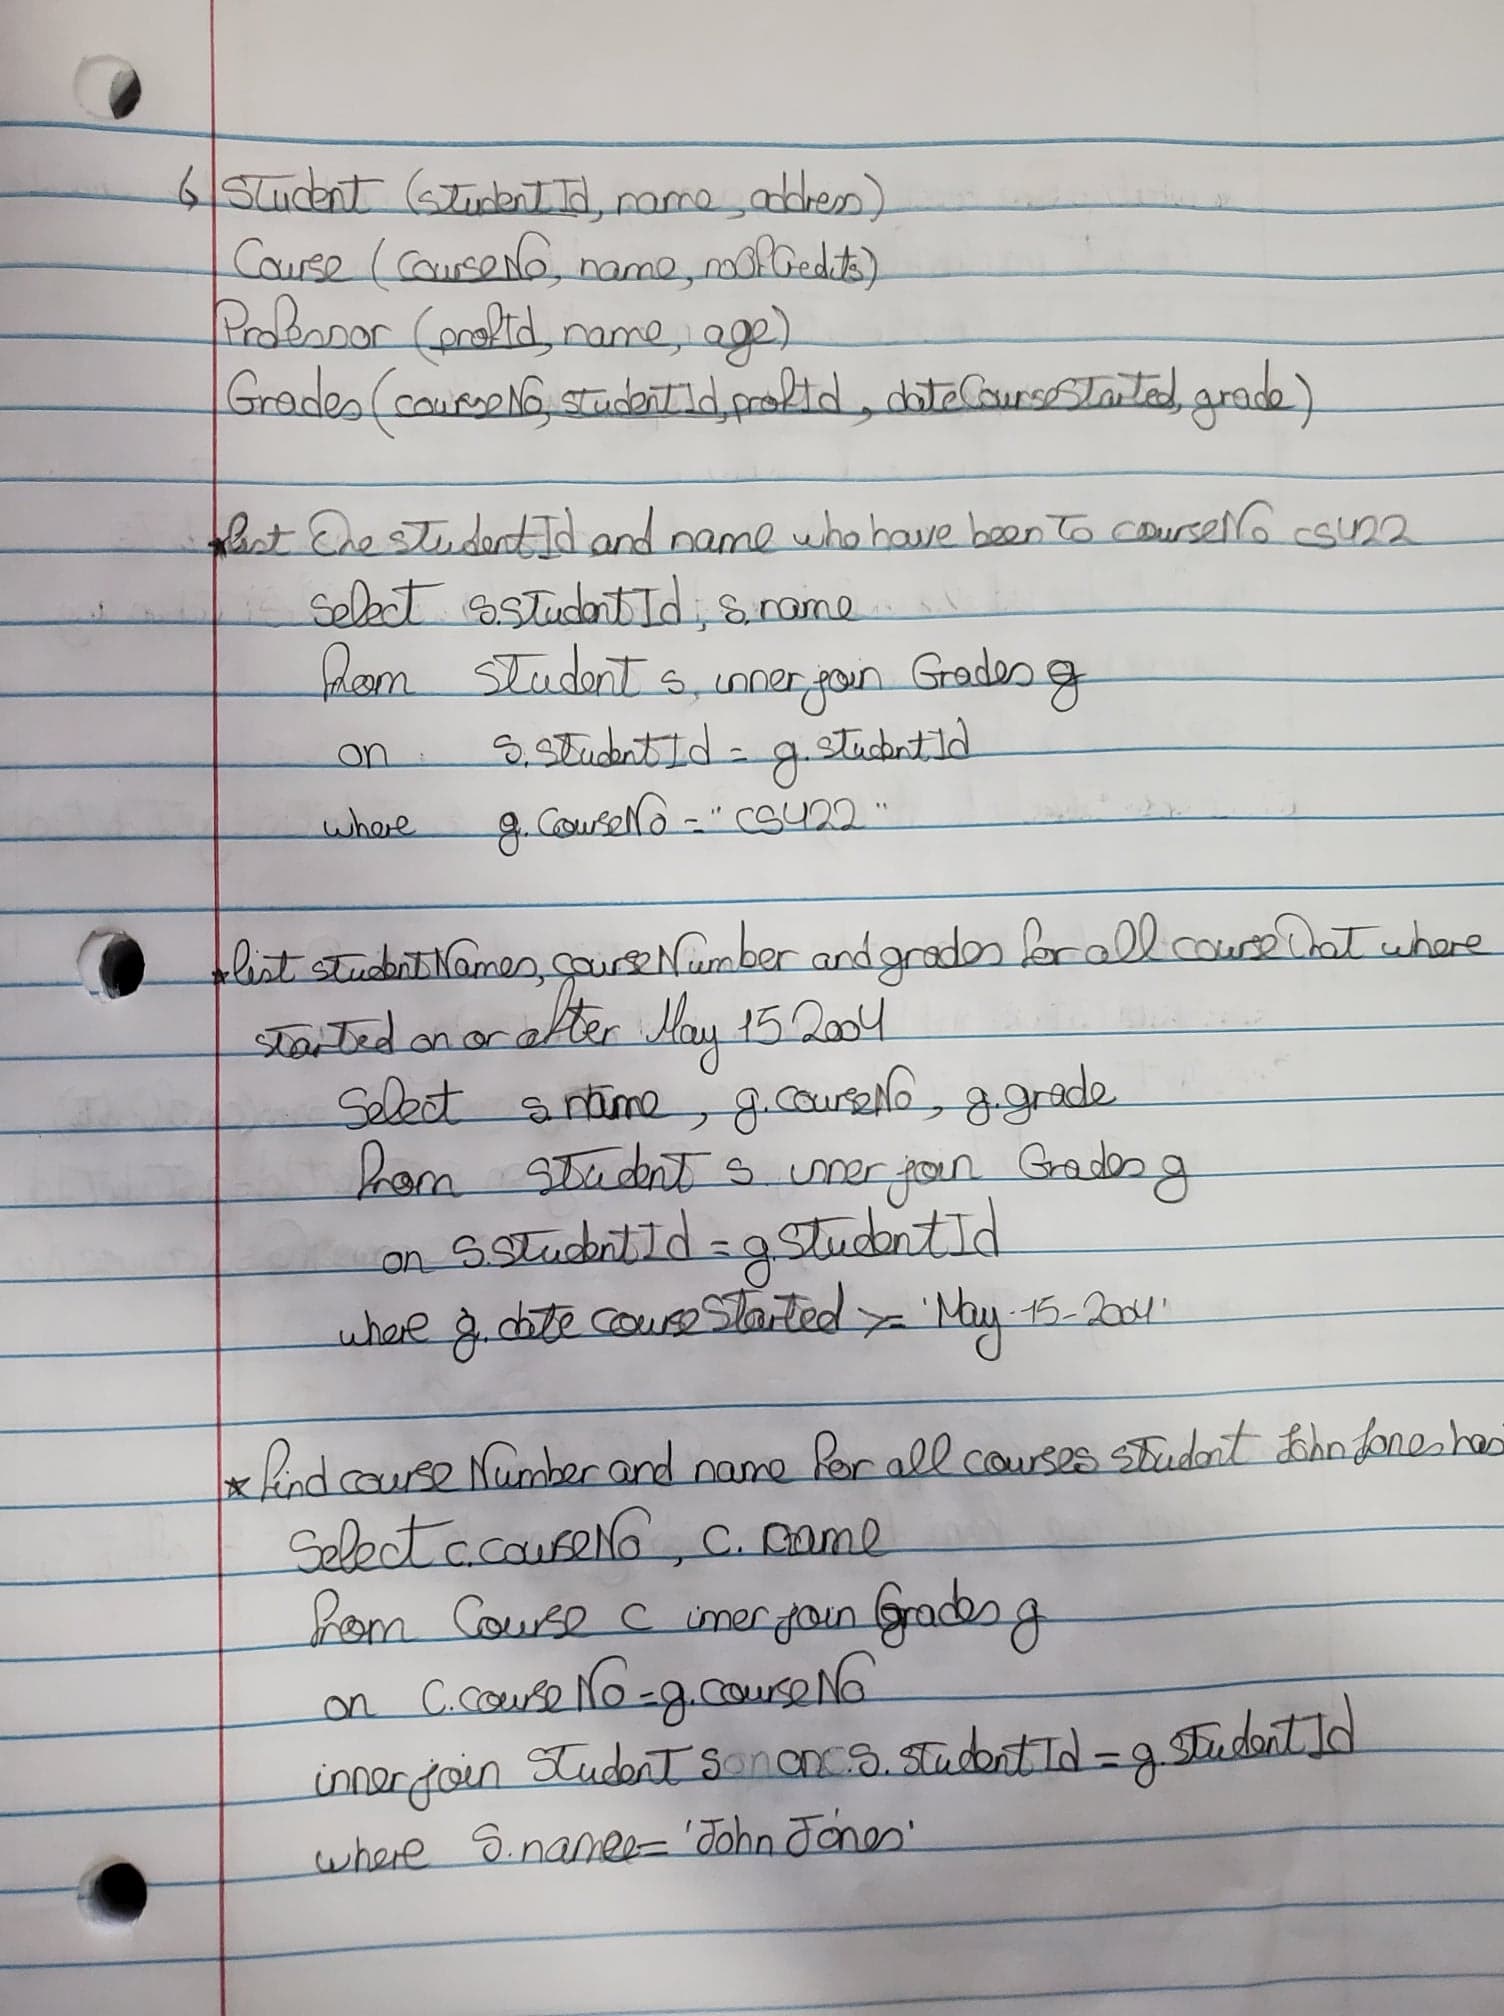 6 Student (studentId, name, address)
Course (courseNo, name, noOfCredits)
Professor (profId, name, age)
Grades (courseNo, studentId, profId, dateCourseStarted, grade)
*list the studentId and name who have been to courseNo CS422
select s.studentId, s.name
from student s, inner join Grades g
on s.studentId = g.studentId
where g.courseNo = "CS422"
*list studentNames, courseNumber and grades for all course that where
started on or after May 15 2004
Select s.name, g.courseNo, g.grade
from student s inner join Grades g
on s.studentId = g.studentId
where g.date courseStarted >= 'May-15-2004'
* find course Number and name for all courses student John Jones has
Select c.courseNo, c.name
from Course c inner join Grades g
on c.courseNo = g.courseNo
inner join Student s on s.studentId = g.studentId
where s.name = 'John Jones'